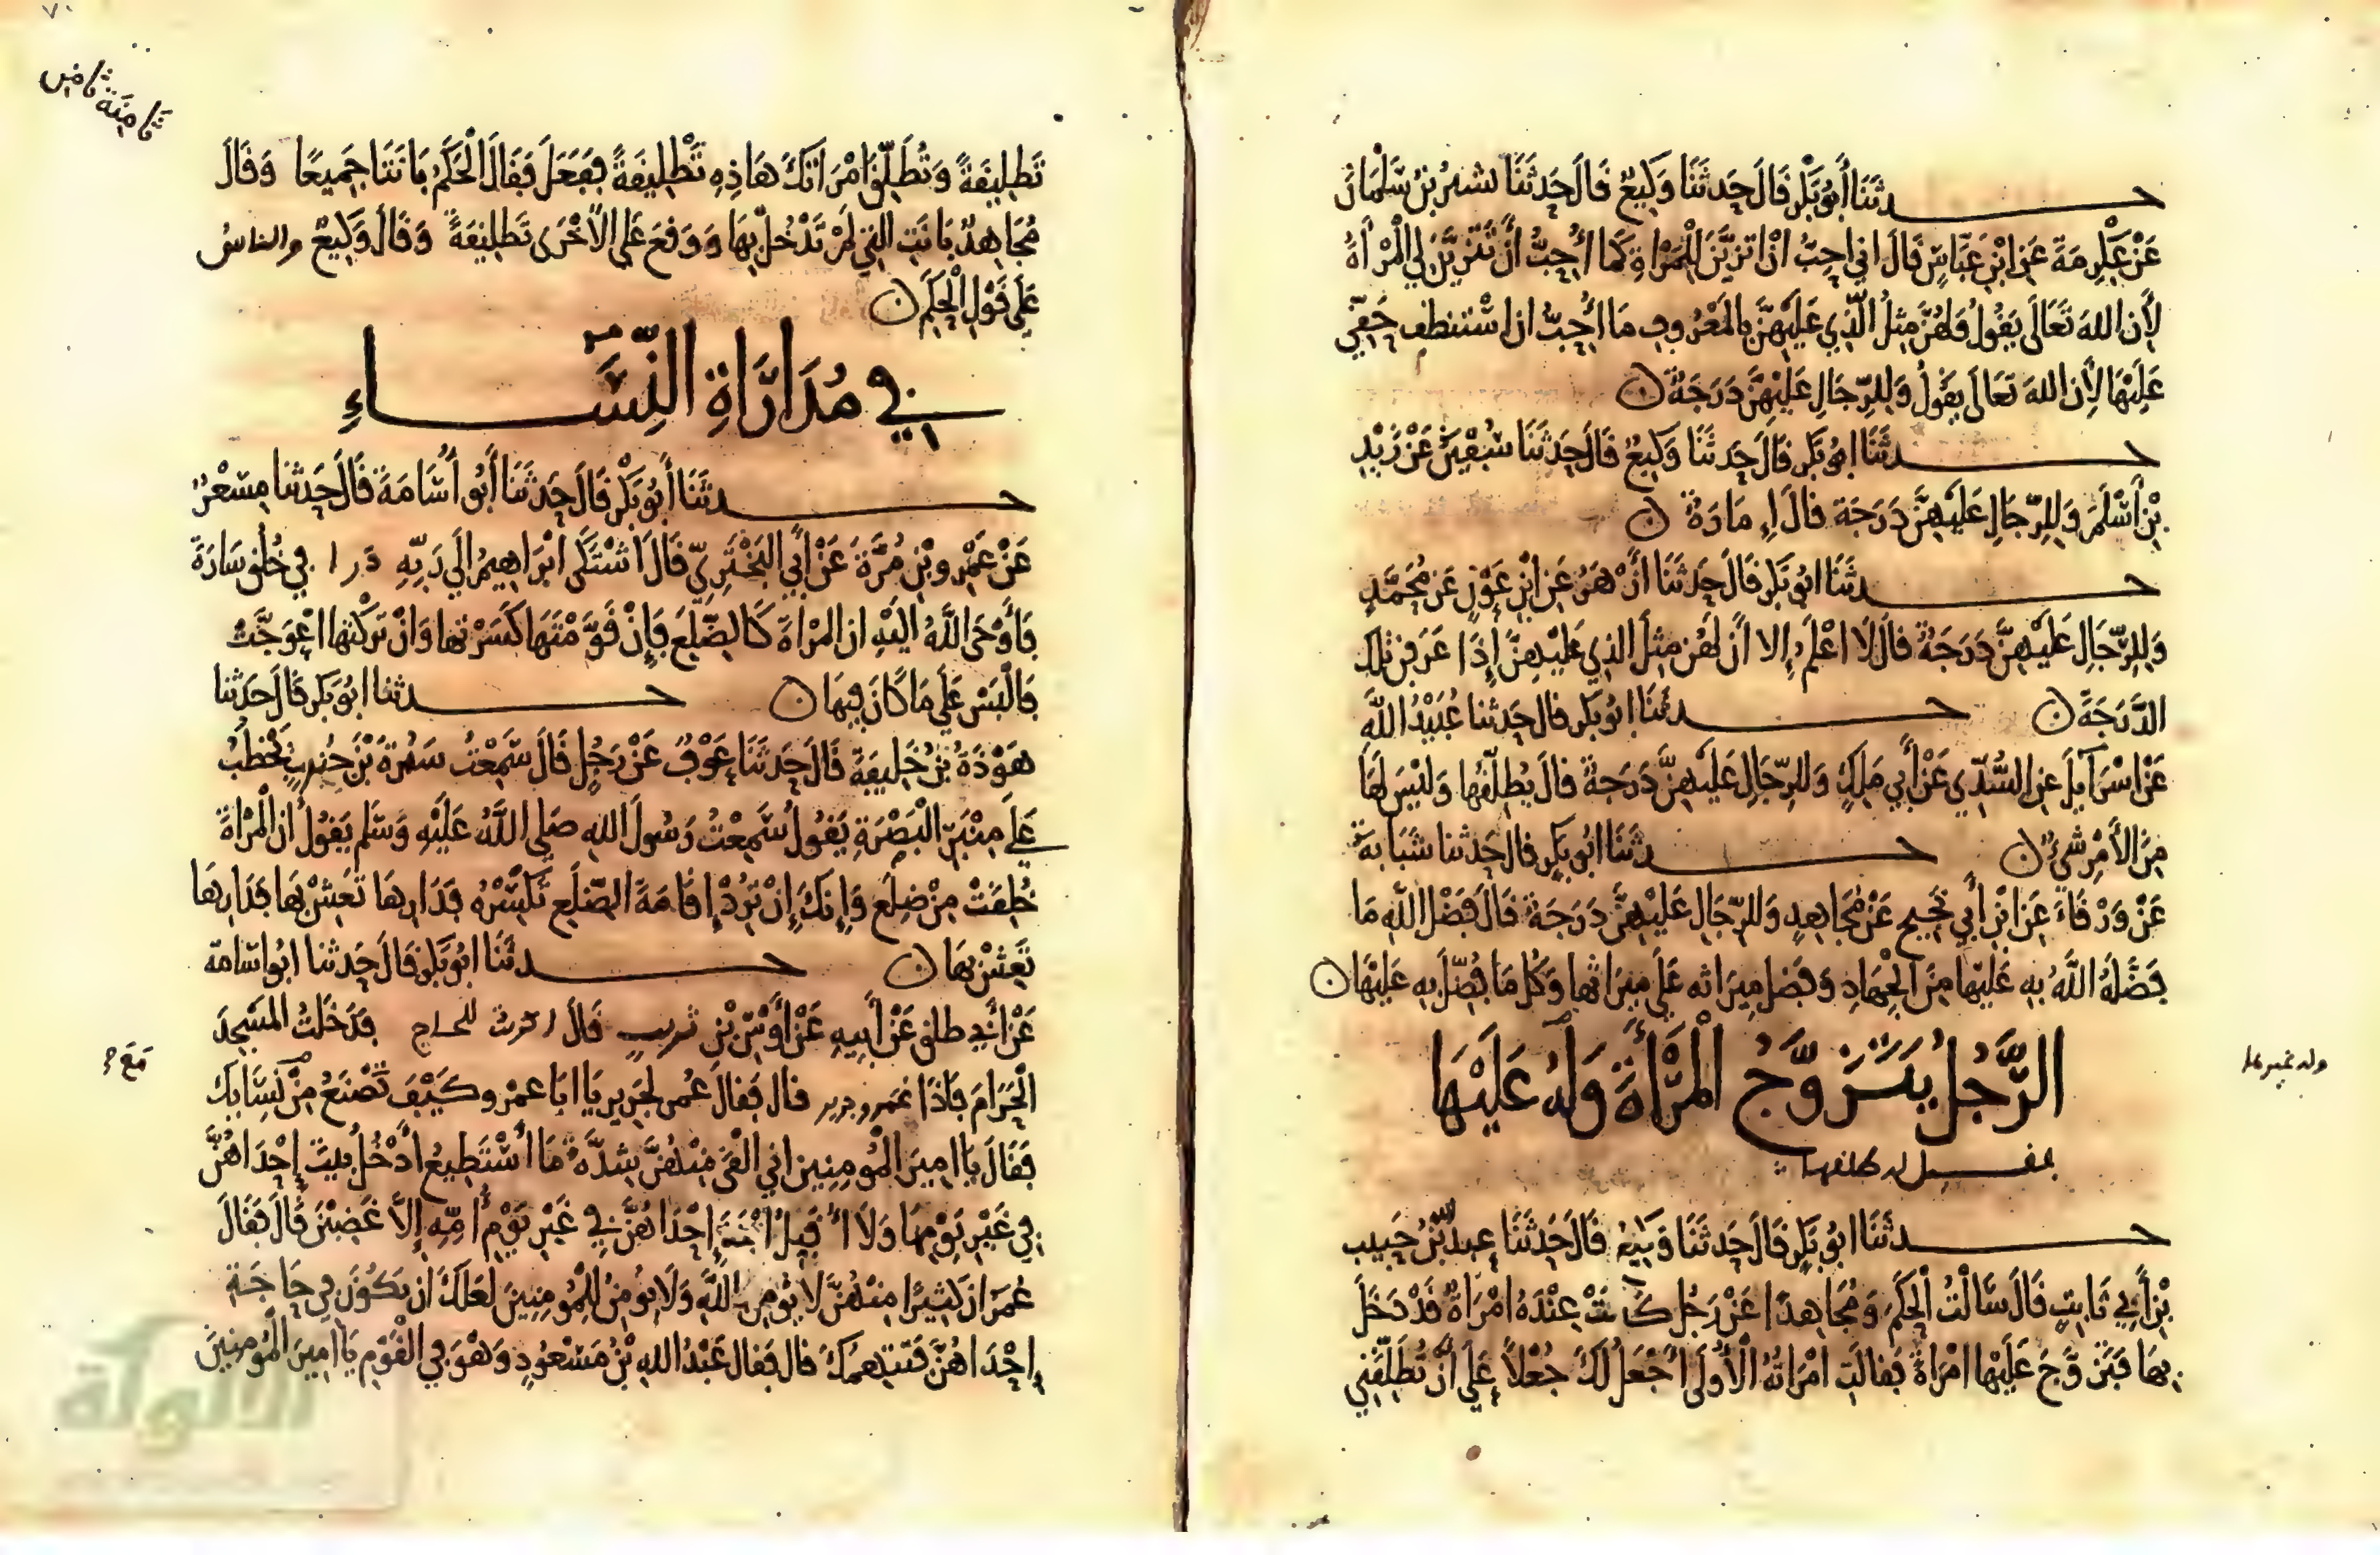 حدثنا أبو بكر قال حدثنا وكيع قال حدثنا بشير بن سلمان
عن عكرمة عن ابن عباس قال اني احب ان اتزين للمرأة كما أحب أن تتزين لي المرأة
لأن الله تعالى يقول ولهن مثل الذي عليهن بالمعروف وما احب ان استنطف حقي
عليها لأن الله تعالى يقول وللرجال عليهن درجة ن
حدثنا ابو بكر قال حدثنا وكيع قال حدثنا سفين عن زيد
بن أسلم وللرجال عليهن درجة قال إمارة ن
حدثنا ابو بكر قال حدثنا أزهر عن ابن عون عن محمد
وللرجال عليهن درجة قال لا اعلم إلا أن لهن مثل الذي عليهن إذا عرفن تلك
الدرجة ن حدثنا ابو بكر قال حدثنا عبيد الله
عن اسرائيل عن السدي عن أبي ملك وللرجال عليهن درجة قال يطلقها وليس لها
من الأمر شيء ن حدثنا ابو بكر قال حدثنا شبابة
عن ورقاء عن ابن أبي نجيح عن مجاهد وللرجال عليهن درجة قال فضل الله ما
فضله الله به عليها من الجهاد وفضل ميراثه على ميراثها وكل ما فضل به عليها ن
الرجل يتزوج المرأة وله عليها
حدثنا ابو بكر قال حدثنا وكيع قال حدثنا عبد الله بن حبيب
بن أبي ثابت قال سألت الحكم ومجاهدا عن رجل كانت عنده امرأة قد دخل
بها فتزوج عليها امرأة فقالت امرأته الأولى أجعل لك جعلا على أن تطلقني
ثامنة
تطليقة وتطلق امرأتك هاذه تطليقة ففعل فقال الحكم بانتا جميعا وقال
مجاهد بانت التي لم تدخل بها ووقع على الأخرى تطليقة وقال وكيع والناس
على قول الحكم ن
في مداراة النساء
حدثنا أبو بكر قال حدثنا أبو أسامة قال حدثنا مسعر
عن عمرو بن مرة عن أبي البختري قال اشتكى ابراهيم الى ربه درا في خلق سارة
فأوحى الله اليه ان المرأة كالضلع فإن قومتها كسرتها وان تركتها اعوجت
فالبس على ما كان فيها ن حدثنا ابو بكر قال حدثنا
هوذة بن خليفة قال حدثنا عوف عن رجل قال سمعت سمرة بن جندب يخطب
على منبر البصرة يقول سمعت رسول الله صلى الله عليه وسلم يقول ان المرأة
خلقت من ضلع وإنك إن ترد إقامة الضلع تكسره فدارها تعش بها فدارها
تعش بها ن حدثنا ابو بكر قال حدثنا ابو اسامة
عن أبي طلق عن أبيه عن أوس بن ثريب قال اكريت للحاج فدخلت المسجد
الحرام فاذا عمر وجرير قال فقال عمر لجرير يا ابا عمرو كيف تصنع مع نسائك
فقال يا امير المومنين اني القى منهن شدة ما أستطيع أدخل بيت إحداهن
في غير يومها ولا أقبل ابن إحداهن في غير يوم أمه إلا غضبن قال فقال
عمر ان كثيرا منهن لا يومن بالله ولا يومن للمومنين لعلك ان تكون في حاجة
إحداهن فتتهمك قال فقال عبد الله بن مسعود وهو في القوم يا امير المومنين
الألوكة